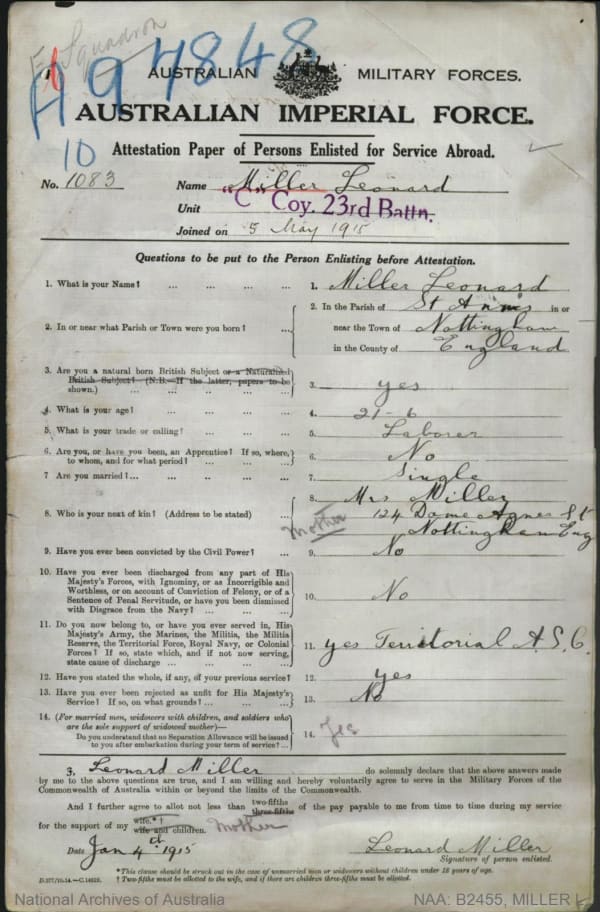 E Squadron
A94848
AUSTRALIAN MILITARY FORCES.
AUSTRALIAN IMPERIAL FORCE.
10
Attestation Paper of Persons Enlisted for Service Abroad.
No. 1083 Name Miller Leonard
Unit "C" Coy. 23rd Battn.
Joined on 5 May 1915
Questions to be put to the Person Enlisting before Attestation.
1. What is your Name? ... ... ... ... 1. Miller Leonard
2. In or near what Parish or Town were you born? ... 2. In the Parish of St Anns in or
near the Town of Nottingham
in the County of England
3. Are you a natural born British Subject or a Naturalized
British Subject? (N.B.—If the latter, papers to be
shown.) ... ... ... ... 3. yes
4. What is your age? ... ... ... ... 4. 21-6
5. What is your trade or calling? ... ... ... 5. Laborer
6. Are you, or have you been, an Apprentice? If so, where,
to whom, and for what period? ... ... ... 6. No
7. Are you married?... ... ... ... ... 7. Single
8. Who is your next of kin? (Address to be stated) ... 8. Mrs Miller
Mother 124 Dame Agnes St
Nottingham Eng
9. Have you ever been convicted by the Civil Power? ... 9. No
10. Have you ever been discharged from any part of His
Majesty's Forces, with Ignominy, or as Incorrigible and
Worthless, or on account of Conviction of Felony, or of a
Sentence of Penal Servitude, or have you been dismissed
with Disgrace from the Navy? ... ... ... 10. No
11. Do you now belong to, or have you ever served in, His
Majesty's Army, the Marines, the Militia, the Militia
Reserve, the Territorial Force, Royal Navy, or Colonial
Forces? If so, state which, and if not now serving,
state cause of discharge ... ... ... ... 11. yes Territorial A.S.C.
12. Have you stated the whole, if any, of your previous service? 12. yes
13. Have you ever been rejected as unfit for His Majesty's
Service? If so, on what grounds? ... ... ... 13. No
14. (For married men, widowers with children, and soldiers who
are the sole support of widowed mother)—
Do you understand that no Separation Allowance will be issued
to you after embarkation during your term of service? ... 14. Yes
I, Leonard Miller do solemnly declare that the above answers made
by me to the above questions are true, and I am willing and hereby voluntarily agree to serve in the Military Forces of the
Commonwealth of Australia within or beyond the limits of the Commonwealth.
And I further agree to allot not less than two-fifths three-fifths of the pay payable to me from time to time during my service
for the support of my wife.*† wife and children. Mother
Date Jan 4th 1915 Leonard Miller
Signature of person enlisted.
*This clause should be struck out in the case of unmarried men or widowers without children under 18 years of age.
† Two-fifths must be allotted to the wife, and if there are children three-fifths must be allotted.
D.577/10.14.—C.14622.
National Archives of Australia NAA: B2455, MILLER L